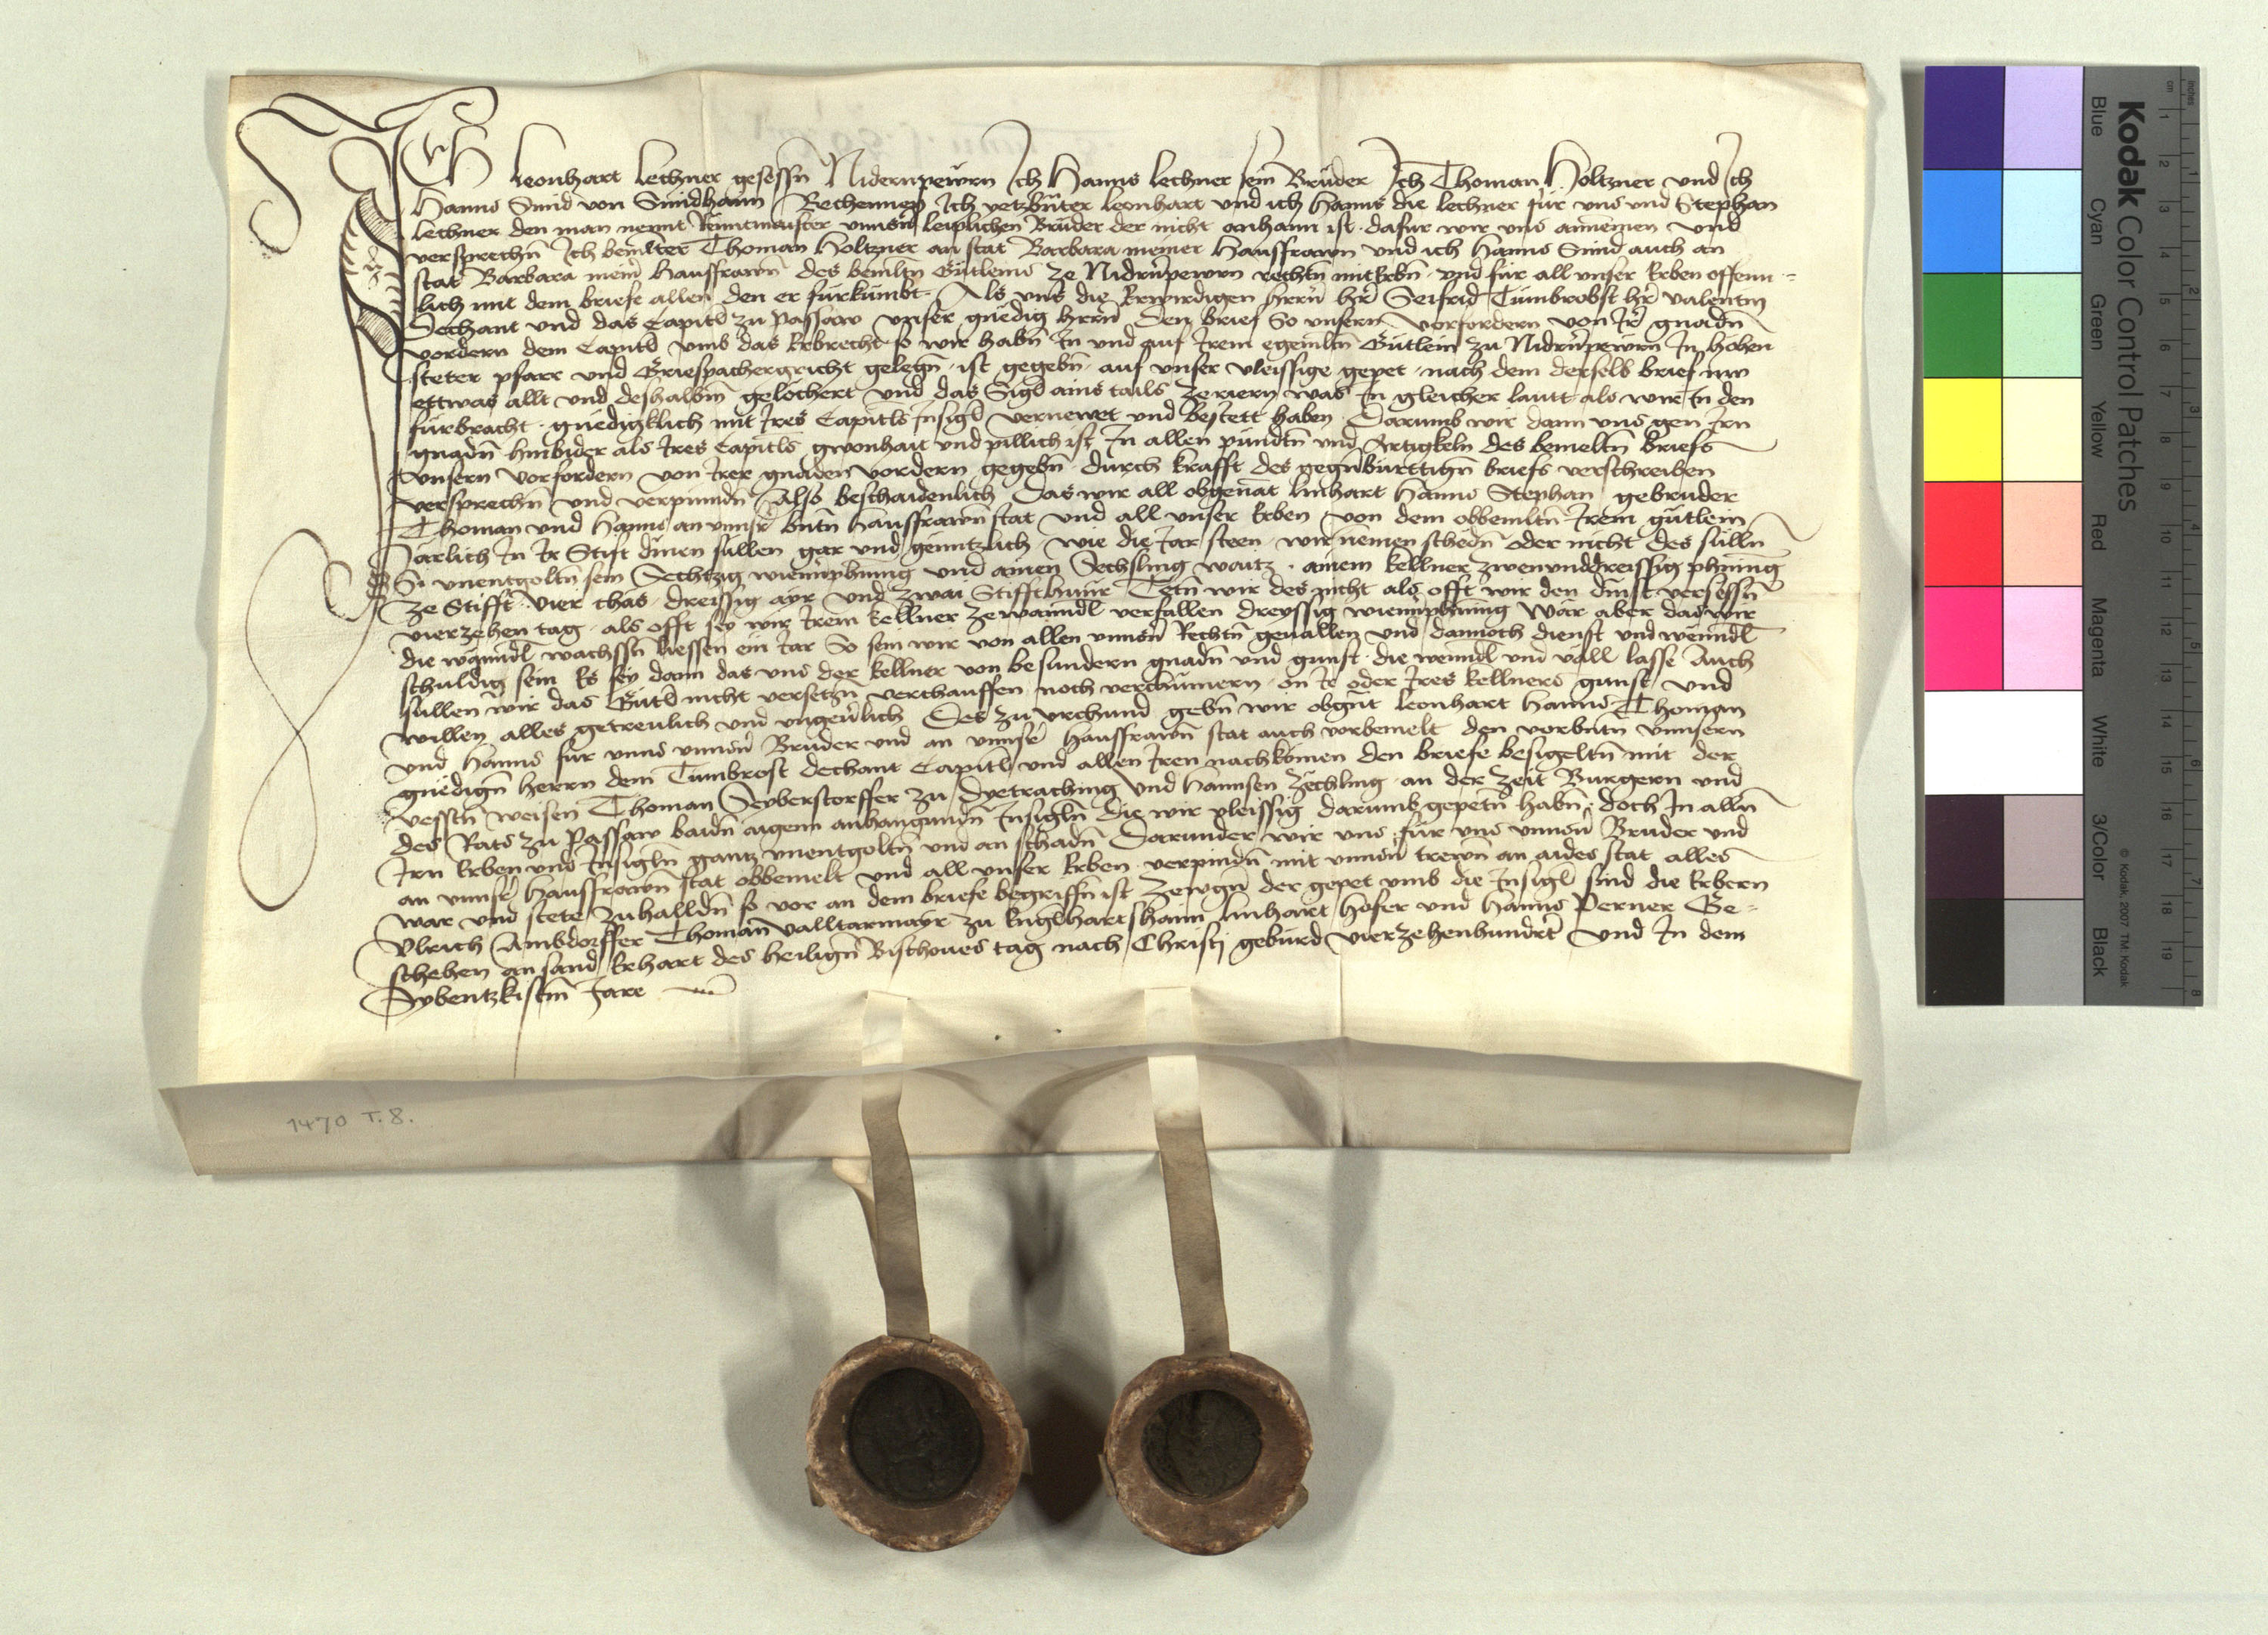 ICH Leonhart Lechner gesessn̄ Nidernpewrn Ich Hanns Lechner sein Brüder Ich Thoman Holtzner und Ich
Hanns Smid von Smidhaim Bechennen Ich yetzbn̄ter Leonhart und ich Hanns die Lechner für uns und Stephan
Lechner den man nennt Renntmaister unnsern leiplichen Brüder der nicht anhaim ist · dafür wir uns annemen und
versprechn̄ Ich bemlter Thoman Holtzner an stat Barbara meiner Hausfrawn und ich Hanns Smid auch an
stat Barbara mein̄ hausfrawn̄ des bemltn̄ Gütleins ze Nidrnpewrn rechtn̄ miterbn̄ · und für all unser Erben offenn=
lich mit dem briefe allen den er fürkumbt · Als uns die Erwirdigen herrn̄ her̄ Seifrid Tumbrobst her̄ Valentin
Dechant und das Capitl zu Passaw unser gnedig herrn̄ Den brief So unsern vorfordern von Ir̄ gnadn̄
vordern dem Capitl umb das Erbrecht so wir habn̄ In und auf Irem egemltn̄ Gütlein zu Nidrnpewrn In Höhen
steter pfarr und Griespachergricht gelegn̄ · ist gegebn̄ · auf unser vleissige gepet · nach dem derselb brief nw
ettwas allt und deshalbm̄ gelöchert und das Sigl ains tails zeriern was In gleicher lautt als wir In den
fürbracht · gnedigklich mit Ires Capitls Insigl vernewet und bestett haben Darumb wir dann uns gen Irn
gnadn̄ hinbider als Ires Capitls gwonhait und pillich ist In allen pündtn̄ und Artigkeln des bemeltn̄ briefs
Unsern vorfordern von Irer gnaden vordern gegebn̄ · durch krafft des gegn̄burttign̄ briefs verschreiben
versprechn̄ und verpinndn̄ Also beschaidenlich Das wir all obgenat̄ Linhart Hanns Stephan gebruder
Thoman und Hanns an unnsr̄ bn̄tn̄ hausfrawn̄ stat und all unser Erben von dem obbemltn̄ Irem gütlein
Järlich In Ir Stift dinen süllen gar und genntzlich · wie die Jar steen · wir nemen schedn̄ oder nicht des sülln̄
Si unentgoltn̄ sein Sechtzig wienn̄phning und ainen Sechsling waitz · ainem kellner zwenunddreissig phning
ze Stifft · vier chäs · dreissig ayr und zwai Stiffthünr Tetn̄ wir des nicht als offt wir den dinst versessn̄
vierzehen tag · als offt sey wir Irem kellner ze wanndl verfallen dreyssig wienn̄phning Wär aber das wir
die wänndl wachssn̄ liessen ein Jar So sein wir von allen unnsern̄ Rechtn̄ geuallen und dannoch dienst und wenndl
schuldig sein Es sey dann das uns der kellner von besundern gnadn̄ und gunst · die wenndl und väll lasse Auch
süllen wir das Gütl nicht versetzn̄ verchauffen noch verchümern · on Ir oder Ires kellners gunst und
willen alles getreulich und ungeu̇rlich Des zu urchund gebn̄ wir obgn̄t Leonhart Hanns Thoman
und Hanns für unns unnsern̄ Bruder und an unnser̄ hausfrawn̄ stat auch vorbemelt den vorbn̄tn̄ unnsern
gnedign̄ herrn dem Tumbrost dechant Capitl und allen Iren nachkömen den briefe besigeltn̄ mit der
vesstn̄ weisen Thoman Seyberstorffer zu Dyetraching und Hannsen Zächling · an der zeit Burgern und
des Rats zu Passaw baidn̄ aigenn anhangundn̄ Insigln̄ die wir vleissig darumb gepetn̄ habn̄ · doch In alln̄
Irn Erben und Insigln̄ gantz unentgoltn̄ und an schadn̄ Darunder wir uns · für uns unnsern̄ Bruder und
an unnser̄ hausfrawn̄ stat obbemelt und all unser Erben verpindn̄ mit unnsern̄ trewn̄ an aides stat alles
war und stete zuhalldn̄ so vor an dem briefe begriffn̄ ist Zewgn̄ der gepet umb die Insigl sind die Erbern
Ulrich Ambdorffer Thoman Valltarmayr zu Englhartshaim Linhart Hofer und Hanns Perner Ge=
schehen an sand Erhart des heilign̄ Bischoues tag nach Christj geburd vierzehenhundert̄ und In dem
Sybentzkistm̄ Jare
1470 I. 8.
Kodak Color Control Patches
Blue Cyan Green Yellow Red Magenta White 3/Color Black
© Kodak, 2007 TM: Kodak
cm 1 2 3 4 5 6 7 8 9 10 11 12 13 14 15 16 17 18 19
inches 1 2 3 4 5 6 7 8